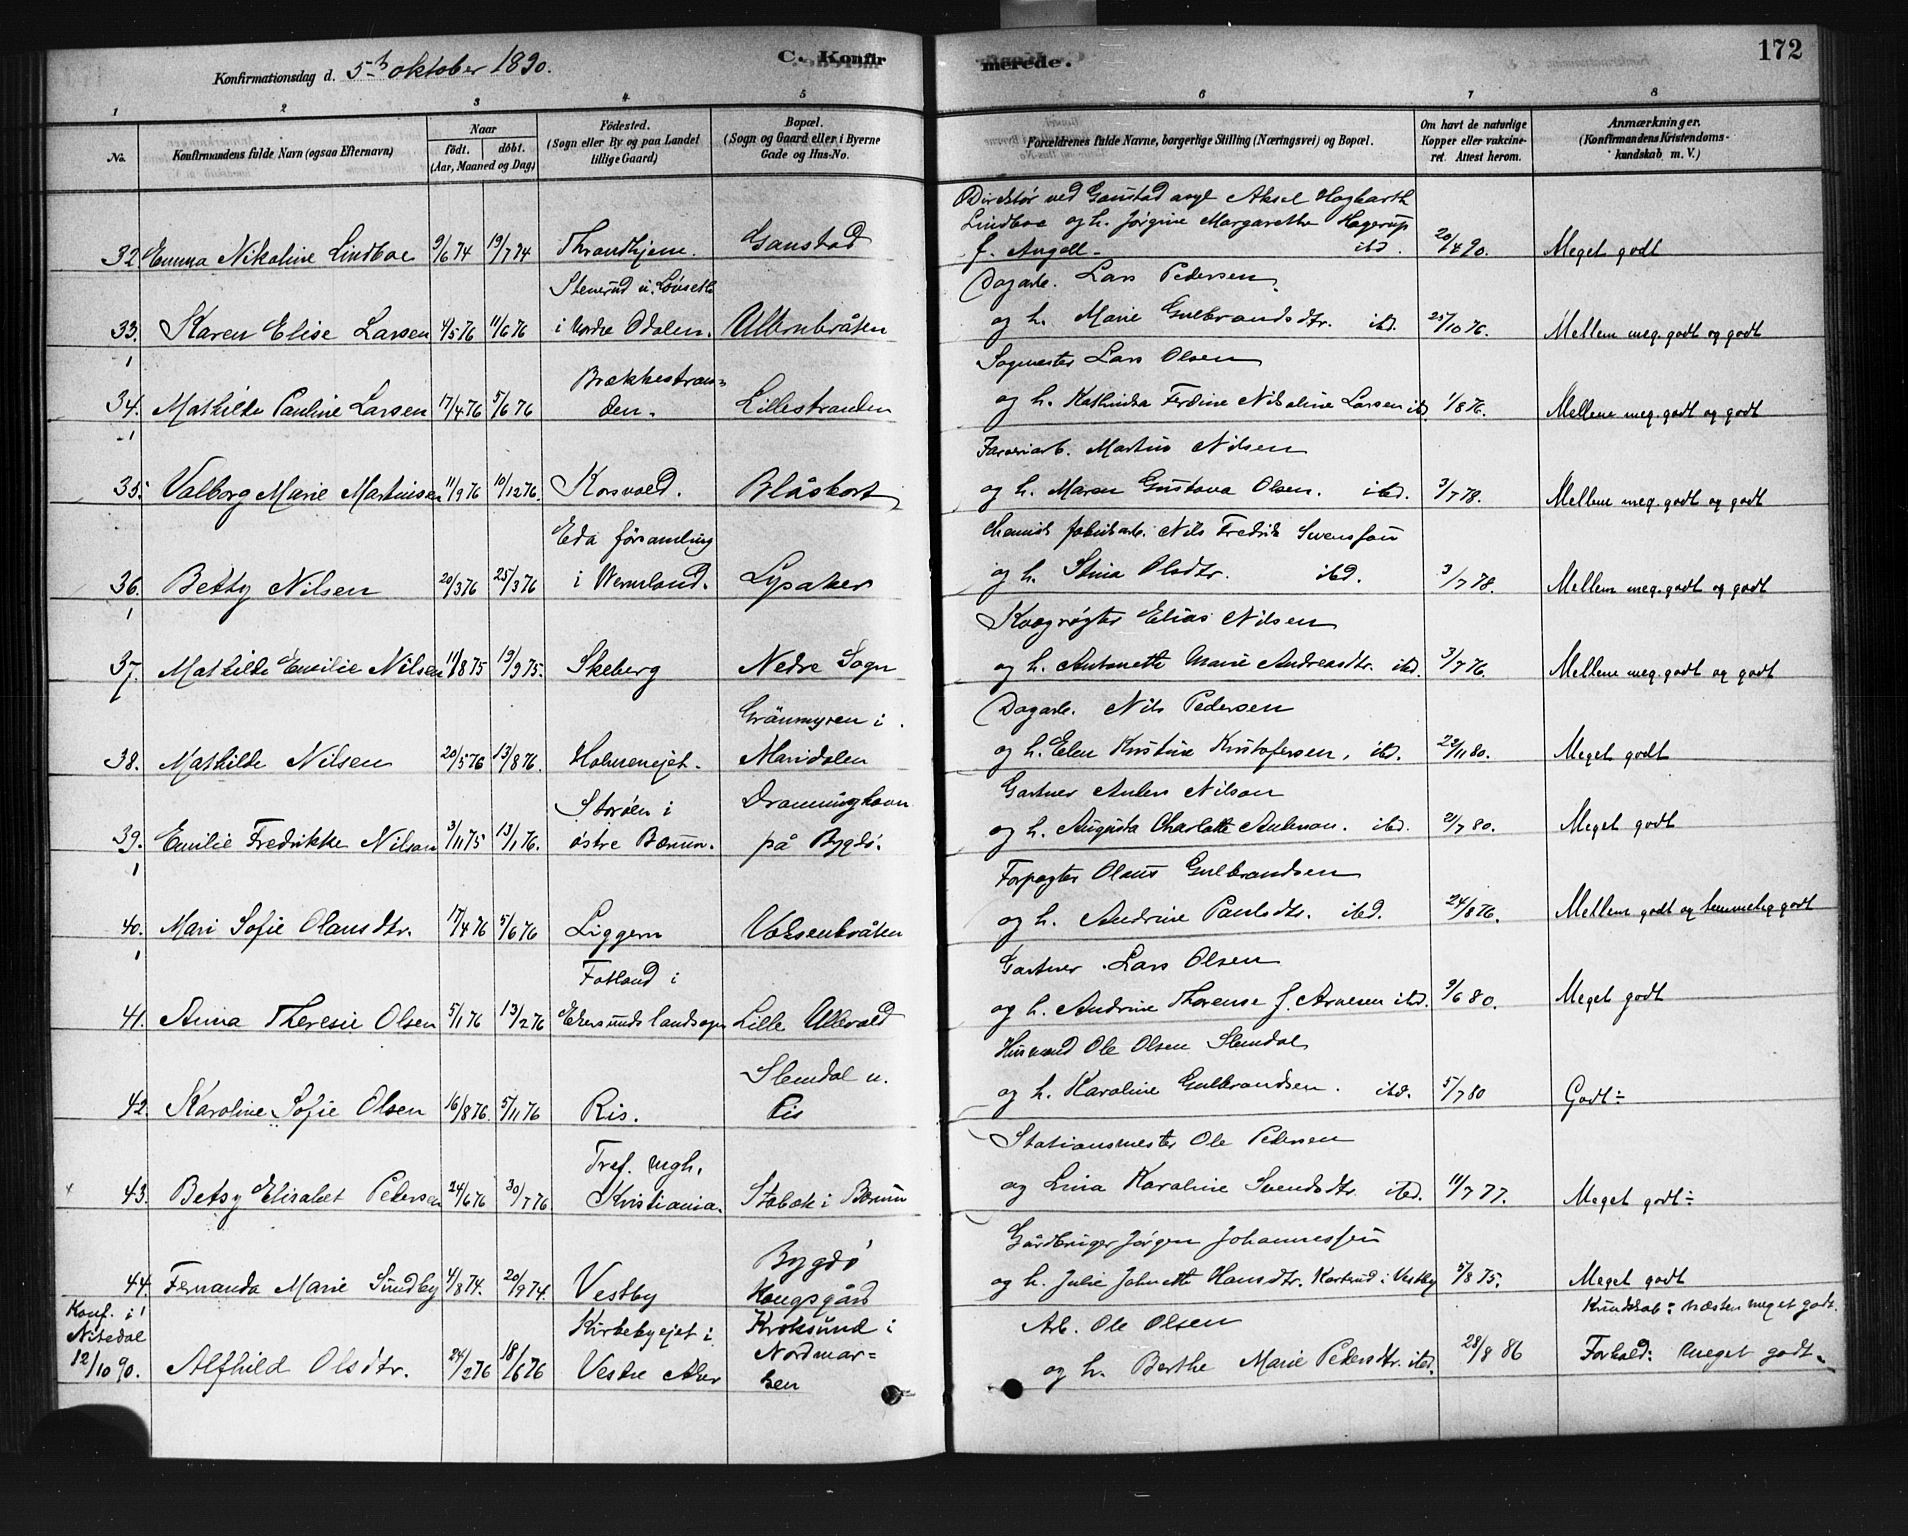 172
Konfirmationsdag d. 5th oktober 1890.
C. Konfir
merede.
1 2 3 4 5 6 7 8
No.
Konfirmandens fulde Navn (ogsaa Efternavn)
Naar
født. döbt.
(Aar, Maaned og Dag)
Födested.
(Sogn eller By og paa Landet
tillige Gaard)
Bopæl.
(Sogn og Gaard eller i Byerne
Gade og Hus-No.
Forældrenes fulde Navne, borgerlige Stilling (Næringsvei) og Bopæl.
Om havt de naturlige
Kopper eller vakcine-
ret. Attest herom.
Anmærkninger.
(Konfirmandens Kristendoms-
kundskab m. V.)
Direktör ved Gaustad asyl Aksel Hagbarth
Lindboe og h. Jørgine Margarethe Hagerup
32 Emma Nikoline Lindboe 9/6 74 19/7 74 Throndhjem. Gaustad f. Angell - ibd. 20/4 90. Meget godt
Stenerud u. Lönseth Dagarb. Lars Pedersen
33. Karen Elise Larsen 4/5 76 11/6 76 i Nordre Odalen. Ullernbråten og h. Marie Gulbrandsdtr. ibd. 25/10 76. Mellem meg. godt og godt
Brækkestran= Sagmester Lars Olsen
34. Mathilde Pauline Larsen 17/4 76 5/6 76 den. Lillestranden og h. Kathinka Ferdine Nikoline Larsen ibd 1/8 76. Mellem meg. godt og godt
Farveriarb. Martin Nilsen
35. Valborg Marie Martinsen 11/9 76 10/12 76. Korsvold. Blåskort og h. Maren Gustava Olsen. ibd. 3/7 78. Mellem meg. godt og godt
Eda församling Chemisk fabrikarb. Nils Fredrik Svensson
36. Betty Nilsen 20/3 76 25/3 76 i Wermland. Lysaker og h. Stina Olsdtr. ibd. 3/7 78. Mellem meg. godt og godt
Kvægrøgter Elias Nilsen
37. Mathilde Emilie Nilsen 11/8 75 19/9 75. Skeberg Nedre Sogn og h. Antonette Marie Andreasdtr. ibd. 3/7 76. Mellem meg. godt og godt
Grönmyren i Dagarb. Nils Pedersen
38. Mathilde Nilsen 20/5 76 13/8 76. Holmenejet. Maridalen og h. Elen Kristine Kristofersen, ibd. 22/11 80. Meget godt
Storöen i Dronninghavn Gartner Anders Nilson
39. Emilie Fredrikke Nilson 3/11 75 13/1 76. østre Bærum. på Bygdö. og h. Augusta Charlotte Anderson. ibd. 21/7 80. Meget godt
Forpagter Olaus Gulbrandsen
40. Mari Sofie Olausdtr. 17/4 76 5/6 76 Liggern Voksenbråten og h. Andrine Paulsdtr. ibd. 24/8 76. Mellem godt og temmelig godt
Fotland i Gartner Lars Olsen
41. Anna Theresie Olsen 5/1 76 13/2 76 Ekersunds landsogn Lille Ullevold og h. Andrine Therense f. Arnesen ibd. 9/6 80. Meget godt
Slemdal u. Husmand Ole Olsen Slemdal
42. Karoline Sofie Olsen 16/8 76. 5/11 76 Ris. Ris og h. Karoline Gulbrandsen. ibd. 5/7 80 Godt÷
Tref. mgh. Stationsmester Ole Pedersen
43. Betsy Elisabet Pedersen 24/6 76 30/7 76 Kristiania. Stabæk i Bærum og Lina Karoline Svendsdtr. ibd. 11/7 77. Meget godt÷
Bygdö Gårdbruger Jörgen Johannessen
44. Fernanda Marie Sundby 4/8 74. 20/9 74. Vestby Kongsgård og h. Julie Johnette Hansdtr. Karlsrud i Vestby 5/8 75. Meget godt
Konf. i Nitedal Kirkebyejet i Kroksund i Arb. Ole Olsen Kundskab: næsten meget godt.
12/10 90. Alfhild Olsdtr. 24/2 76 18/6 76 Vestre Aker Nordmar=
ken og h. Berthe Marie Pedersdtr. ibd. 28/8 86 Forhold: Meget godt.